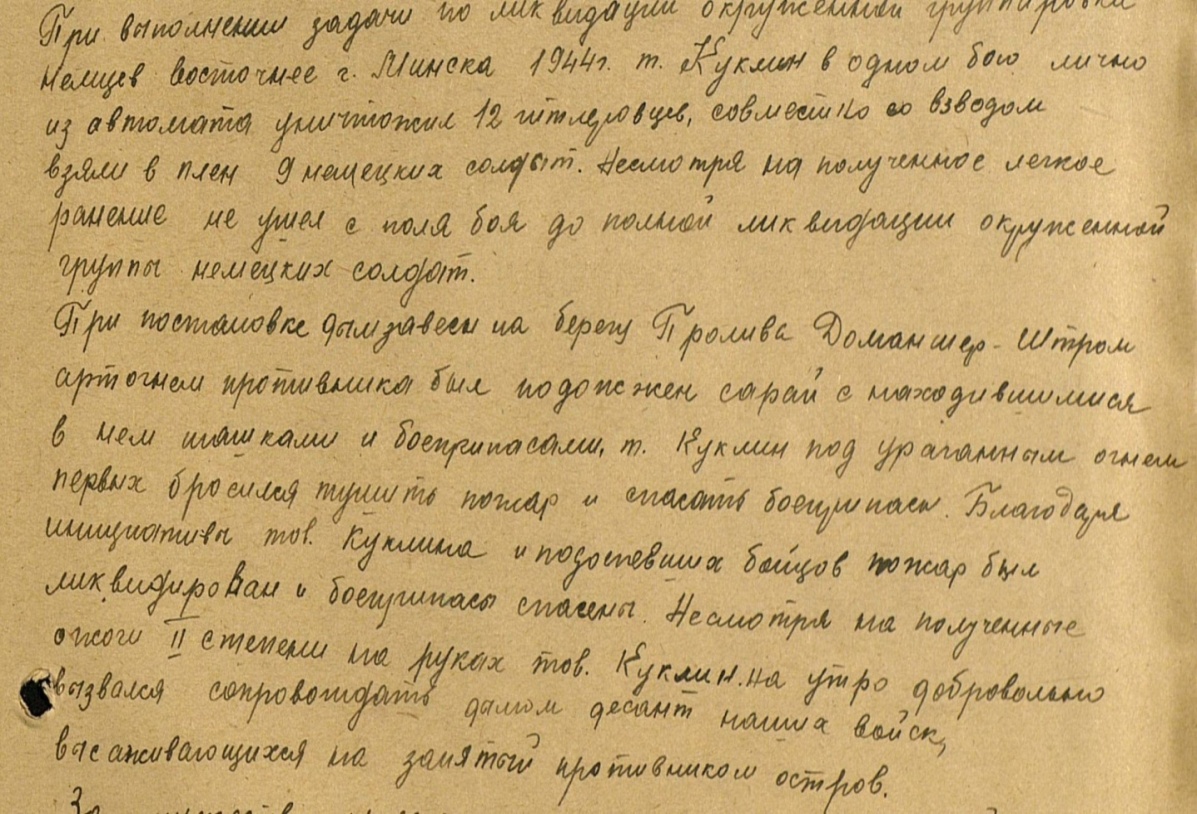 При выполнении задачи по ликвидации окруженной группировки
немцев восточнее г. Минска 1944г. т. Куклин в одном бою лично
из автомата уничтожил 12 гитлеровцев, совместно со взводом
взяли в плен 9 немецких солдат. Несмотря на полученное легкое
ранение не ушел с поля боя до полной ликвидации окруженной
группы немецких солдат.
При постановке дымзавесы на берегу Пролива Доманшер-Штром
артогнем противника был подожжен сарай с находившимися
в нем шашками и боеприпасами, т. Куклин под ураганным огнем
первых бросился тушить пожар и спасать боеприпасы. Благодаря
инициативы тов. Куклина и подоспевших бойцов пожар был
ликвидирован и боеприпасы спасены. Несмотря на полученные
ожоги II степени на руках тов. Куклин на утро добровольно
вызвался сопровождать дымом десант наших войск,
высаживающихся на занятый противником остров.
За